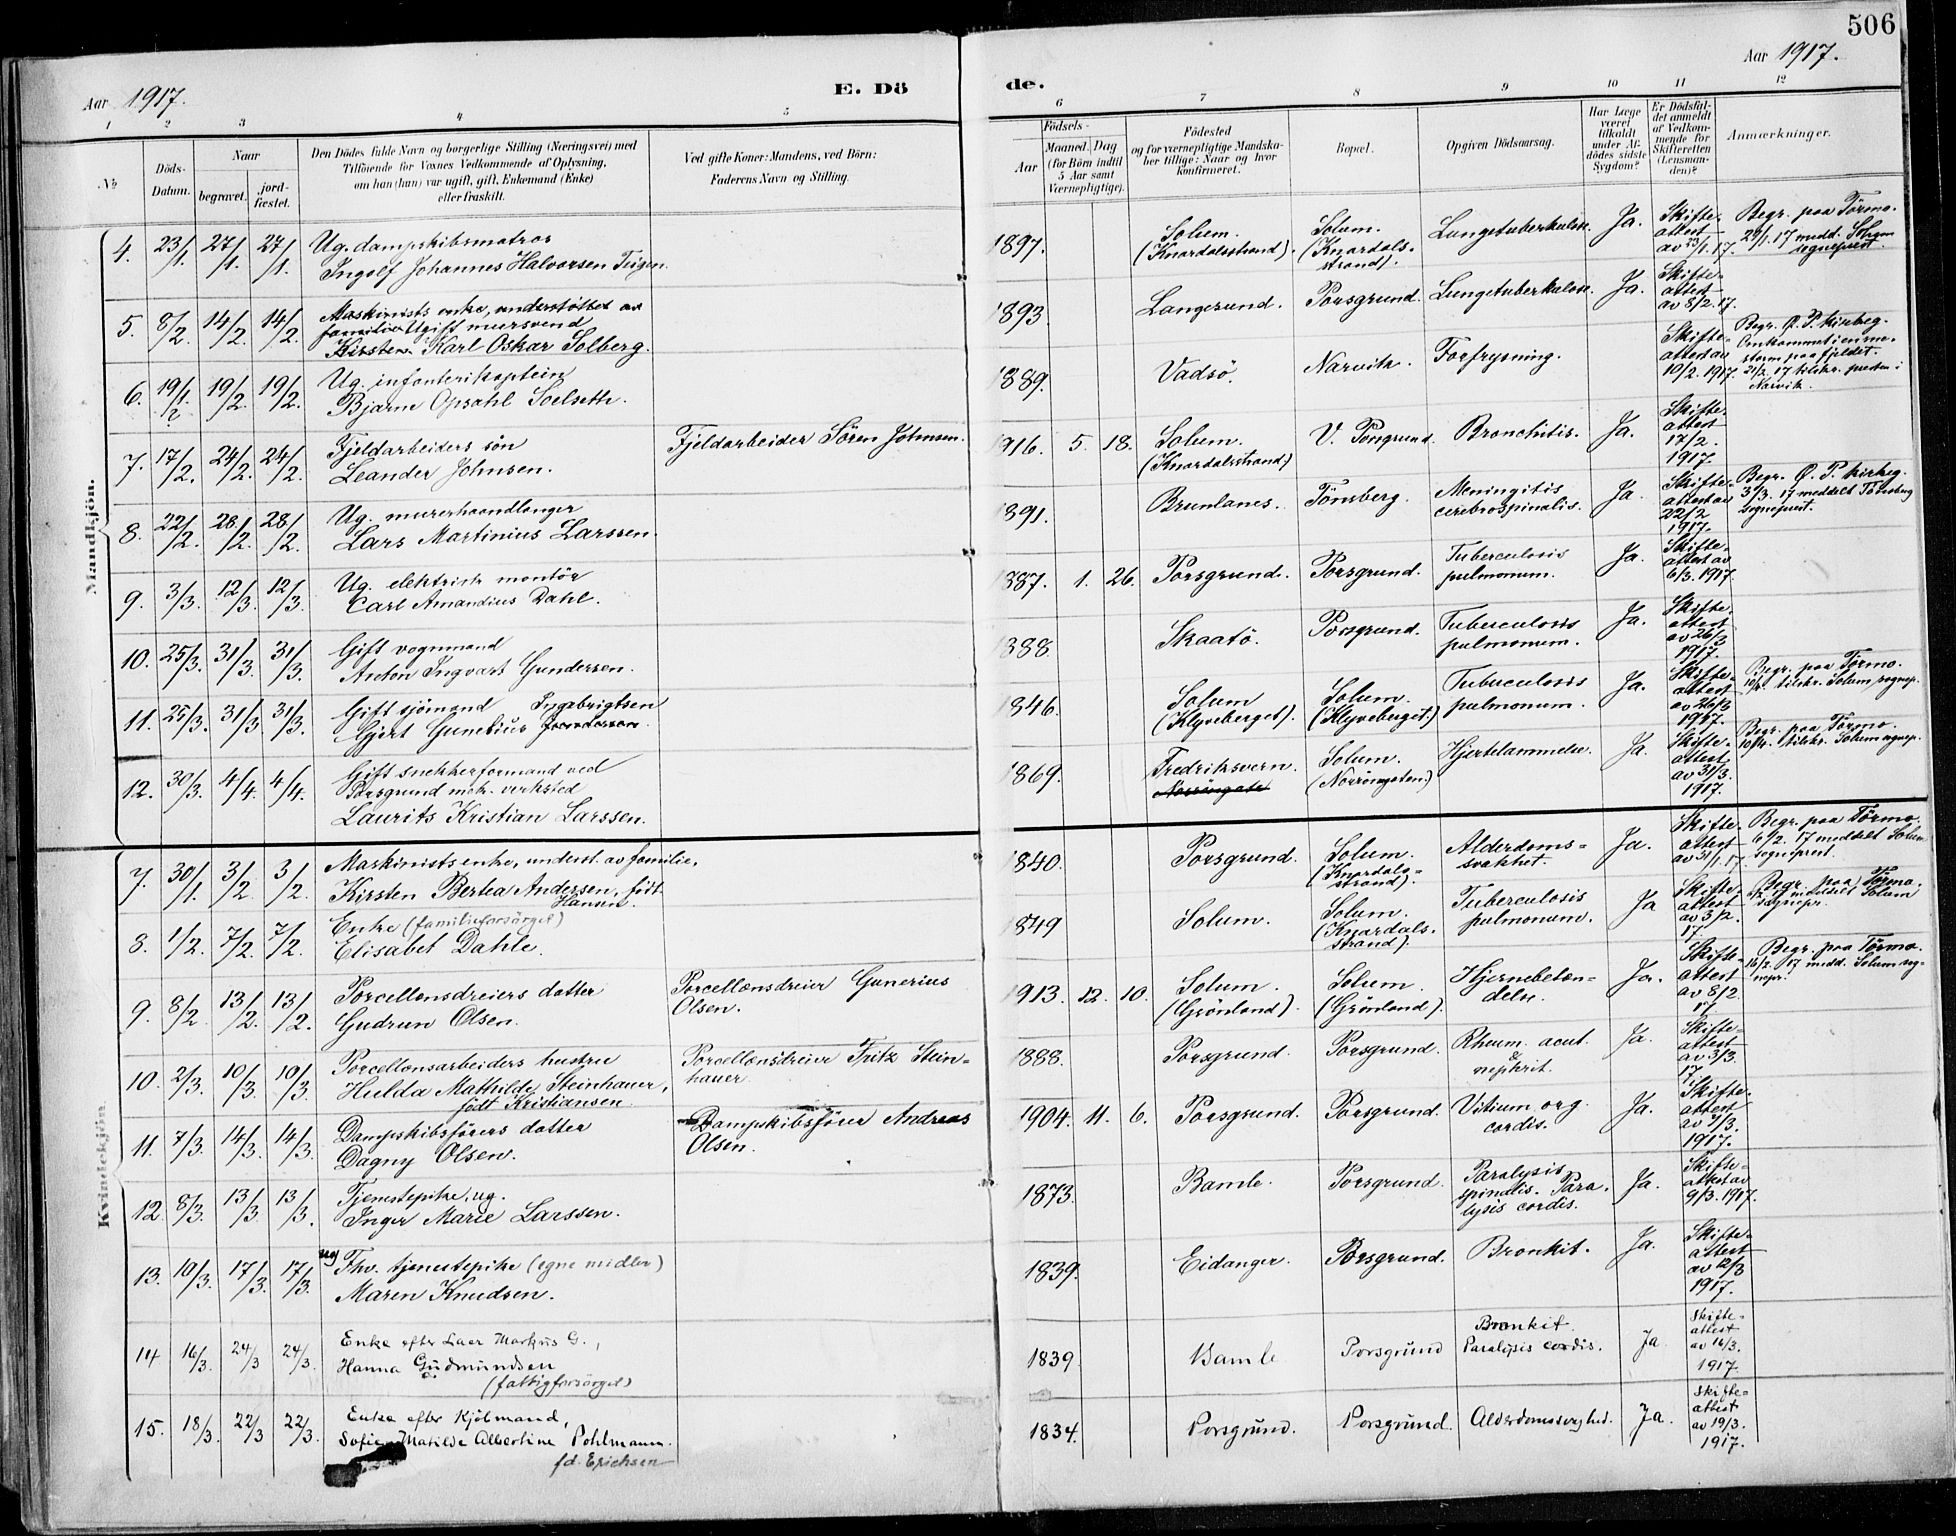 506
Aar 1917.
E. Dö
de.
Aar 1917.
1 2 3 4 5 6 7 8 9 10 11 12
No
Döds-
Datum.
Naar
begravet.
jord-
fæstet.
Den Dödes fulde Navn og borgerlige Stilling (Næringsvei) med
Tilföiende for Voxnes Vedkommende af Oplysning,
om han (hun) var ugift, gift, Enkemand (Enke)
eller fraskilt.
Ved gifte Koner: Mandens, ved Börn:
Faderens Navn og Stilling.
Födsels-
Aar
Maaned. Dag
(for Börn indtil
5 Aar samt
Værnepligtige).
Födested
og for værnepligtige Mandska-
ber tillige: Naar og hvor
konfirmeret.
Bopæl.
Opgiven Dödsaarsag.
Har Læge
været
tilkaldt
under Af-
dödes sidste
Sygdom?
Er Dödsfal-
det anmeldt
af Vedkom-
mende for
Skifteretten
(Lensman-
den)?
Anmærkninger.
Mandkjön.
4. 23/1. 27/1. 27/1.
Ug. dampskibsmatros
Ingolf Johannes Halvorsen Teigen.
1897.
Solum.
(Knardalsstrand).
Solum.
(Knardals-
strand).
Lungetuberkulose.
Ja.
Skifte-
attest
av 23/1.17.
Begr. paa Törmo.
29/1.17 medd. Solum
sogneprest.
5. 8/2. 14/2. 14/2.
Maskinists enke, understöttet av
familie Ugift mursvend
Kirsten Karl Oskar Solberg.
1893.
Langesund.
Porsgrund.
Lungetuberkulose.
Ja.
Skifte-
attest
av 8/2.17.
6. 19/1. 2 19/2. 19/2.
Ug. infanterikaptein
Bjarne Opsahl Soelseth.
1889.
Vadsö.
Narvik.
Forfrysning.
Skifte-
attest av
19/2.1917.
Begr. Ø. P. kirkeg.
Omkommet i en sne-
storm paa fjeldet.
21/2.17 tilskr. presten i
Narvik.
7. 17/2. 24/2. 24/2.
Fjeldarbeiders sön
Leander Johnsen.
Fjeldarbeider Sören Johnsen.
1916. 5. 18.
Solum.
(Knardalsstrand.)
V. Porsgrund.
Bronchitis.
Ja.
Skifte-
attest
17/2.
1917.
8. 22/2. 28/2. 28/2.
Ug. murerhaandlanger
Lars Martinius Larssen.
1891.
Brunlanes.
Tönsberg.
Meningitis
cerebrospinalis.
Ja.
Skifte-
attest av
22/2
1917.
Begr. Ø. P. kirkeg.
3/3. 17 meddelt Tönsberg
sogneprest.
9. 3/3. 12/3. 12/3.
Ug. elektrisk montör
Carl Amandius Dahl.
1887. 1. 26.
Porsgrund.
Porsgrund.
Tuberculosis
pulmonum.
Ja.
Skifte-
attest av
6/3.1917.
10. 25/3. 31/3. 31/3.
Gift vognmand
Anton Ingvart Gundersen.
1888.
Skaatö.
Porsgrund.
Tuberculosis
pulmonum.
Ja.
Skifte-
attest
av 26/3
1917.
11. 25/3. 31/3. 31/3.
Gift sjömand Ingebrigtsen
Gjert Gunelius
1846.
Solum
(Klyveberget).
Solum.
(Klyveberget.)
Tuberculosis
pulmonum.
Ja.
Skifte-
attest
av 26/3
1917.
Begr. paa Törmo.
10/4. tilskr. Solum sognep.
12. 30/3. 4/4. 4/4.
Gift snekkerformand ved
Porsgrund mek. verksted
Laurits Kristian Larssen.
1869.
Fredriksvern.
Solum.
(Norröngaten.)
Hjertelammelse.
Ja.
Skifte-
attest
av 31/3.
1917.
Begr. paa Törmo.
10/4. tilskr. Solum sognep.
Kvindekjön.
7. 30/1. 3/2. 3/2.
Maskinists enke, underst. av familie,
Kirsten Bertea Andersen, født
Hansen.
1840.
Porsgrund.
Solum.
(Knardals-
strand).
Alderdoms-
svakhet.
Ja.
Skifte-
attest
av 31/1.17.
Begr. paa Törmo.
6/2. 17 meddelt Solum
sogneprest.
8. 1/2. 7/2. 7/2.
Enke (familieforsörget)
Elisabet Dahle.
1849
Solum.
Solum.
(Knardals-
strand).
Tuberculosis
pulmonum.
Ja
Skifte-
attest
av 3/2.
17.
Begr. paa Törmo.
17 meddelt Solum
sognepr.
9. 8/2. 13/2. 13/2.
Porcellænsdreiers datter
Gudrun Olsen.
Porcellænsdreier Gunerius
Olsen.
1913. 12. 10.
Solum.
(Grönland).
Solum.
(Grönland).
Hjernebetæn-
delse.
Ja.
Skifte-
attest
av 8/2.
17.
Begr. paa Törmo.
16/2. 17 medd. Solum sog-
nepr.
10. 2/3. 10/3. 10/3.
Porcellænsarbeiders hustru
Hulda Mathilde Steinhauer,
født Kristiansen.
Porcellænsdreier Fritz Stein-
hauer.
1888.
Porsgrund.
Porsgrund.
Rheum. acut.
&
nephrit.
Ja.
Skifte-
attest
av 3/3.
17.
11. 7/3. 14/3. 14/3.
Dampskibsförers datter
Dagny Olsen.
Dampskibsförer Andreas
Olsen.
1904. 11. 6.
Porsgrund.
Porsgrund.
Vitium org.
cordis.
Ja.
Skifte-
attest
av 7/3.
1917.
12. 8/3. 13/3. 13/3.
Tjenestepike, ug.
Inger Marie Larssen.
1873.
Bamle.
Porsgrund.
Paralysis
spinalis. Para-
lysis cordis.
Ja.
Skifte-
attest av
9/3.1917.
13. 10/3. 17/3. 17/3.
ug
Fhv. tjenestepike (egne midler)
Maren Knudsen.
1839.
Eidanger.
Porsgrund.
Bronkit.
Ja.
Skifte-
attest
av 12/3
1917.
14 16/3. 24/3 24/3.
Enke efter Laer Markus G.,
Hanna Gudmundsen
(fattigforsörget)
1839.
Bamle
Porsgrund
Bronkit.
Paralysis cordis.
Ja.
Skifte-
attest
av 16/3.
1917.
15. 18/3. 22/3 22/3.
Enke efter Kjölmand,
Sofie Matilde Albertine Pohlmann.
fd. Erichsen
1834.
Porsgrund.
Porsgrund.
Ja.
Skifte-
attest
av 19/3.
1917.